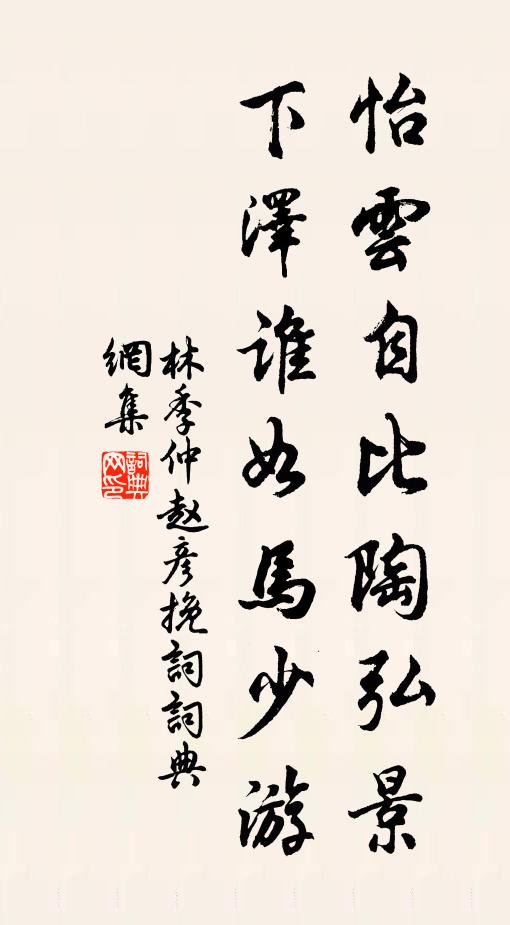 怡雲自比陶弘景
下澤誰如馬少游
林季仲赵彦挽詞詞典
網集
詞典网印